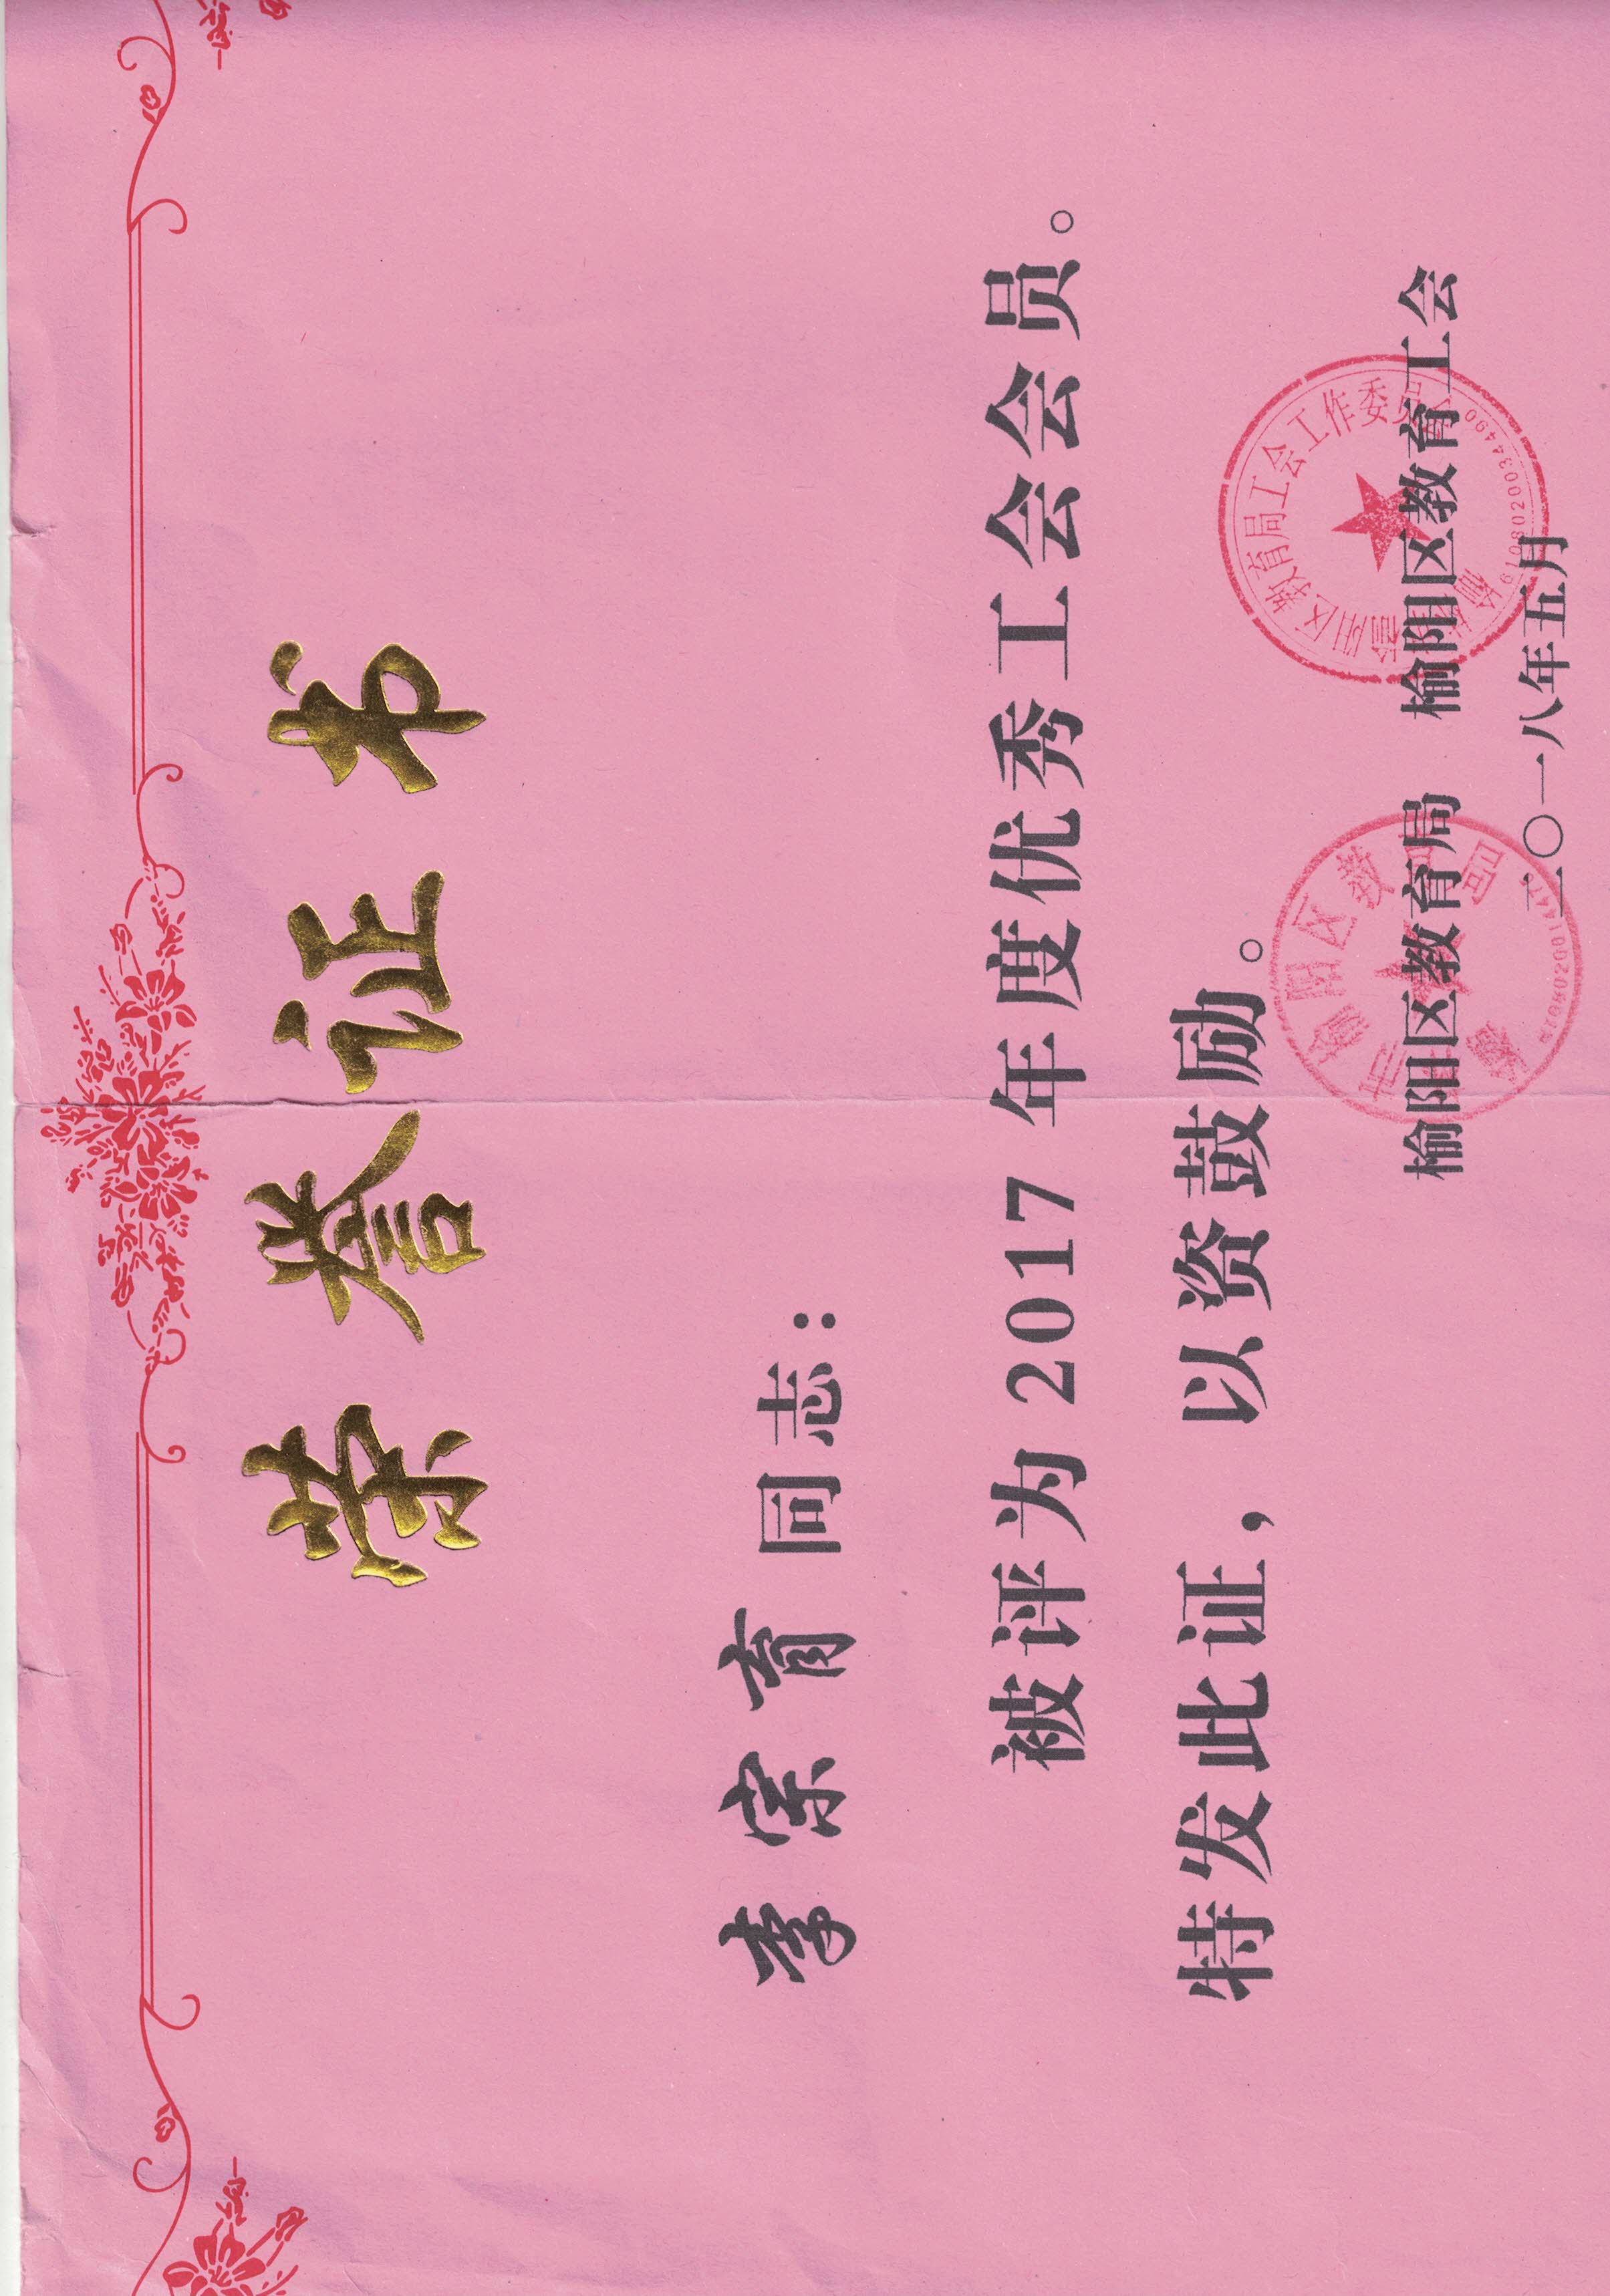 荣誉证书
李宗育同志：
被评为 2017 年度优秀工会会员。
特发此证，以资鼓励。
榆阳区教育局 榆阳区教育工会
二〇一八年五月
榆阳区教育局工会工作委员会
6108020034490